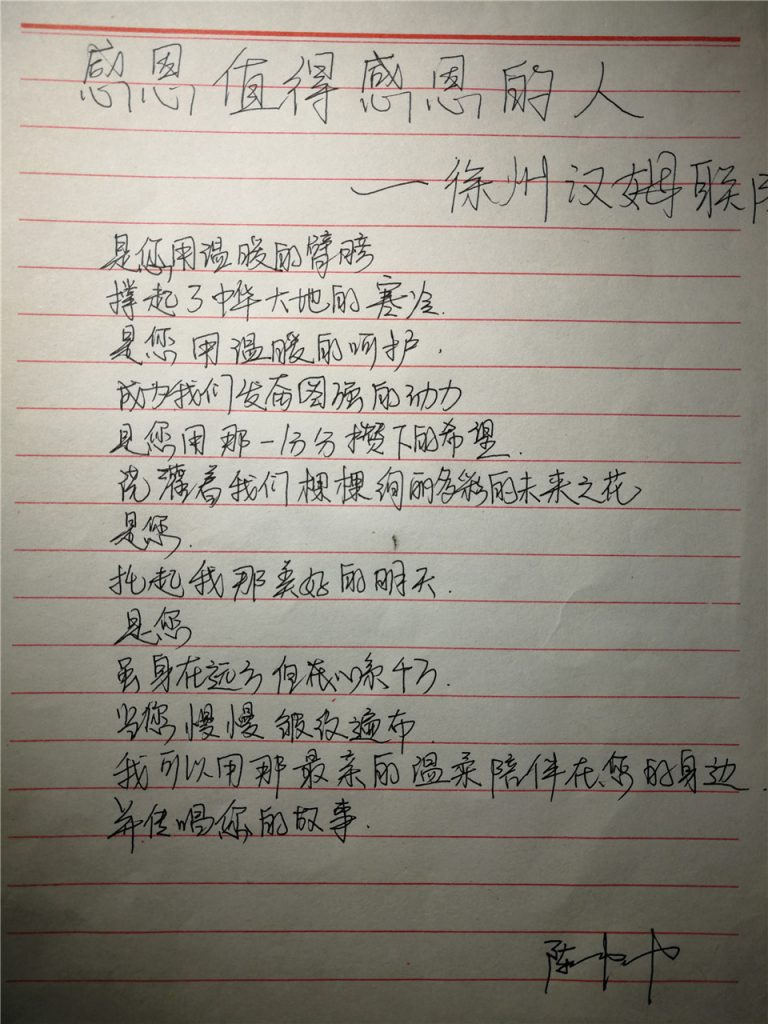 感恩值得感恩的人
——徐州汉姆联
是您用温暖的臂膀
撑起了中华大地的寒冷.
是您用温暖的呵护,
成为我们发奋图强的动力
是您用那一分分攒下的希望.
浇灌着我们棵棵绚丽多彩的未来之花
是您.
托起我那美好的明天.
是您
虽身在远方但我心系
当您慢慢皱纹遍布
我可以用那最亲的温柔陪伴在您的身边.
并传唱您的故事.
陈